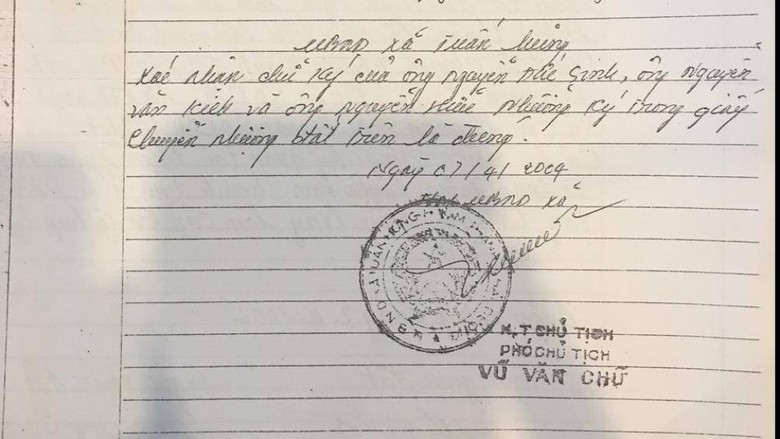 UBND xã Tuấn Hưng
Xác nhận chữ ký của ông Nguyễn Đức Sinh, ông Nguyễn
Văn Kiếh và ông Nguyễn Hữu Nhường ký trong giấy
chuyển nhượng đất trên là đúng.
Ngày 07/4/2004
TM UBND xã
K,T CHỦ TỊCH
PHÓ CHỦ TỊCH
VŨ VĂN CHỮ